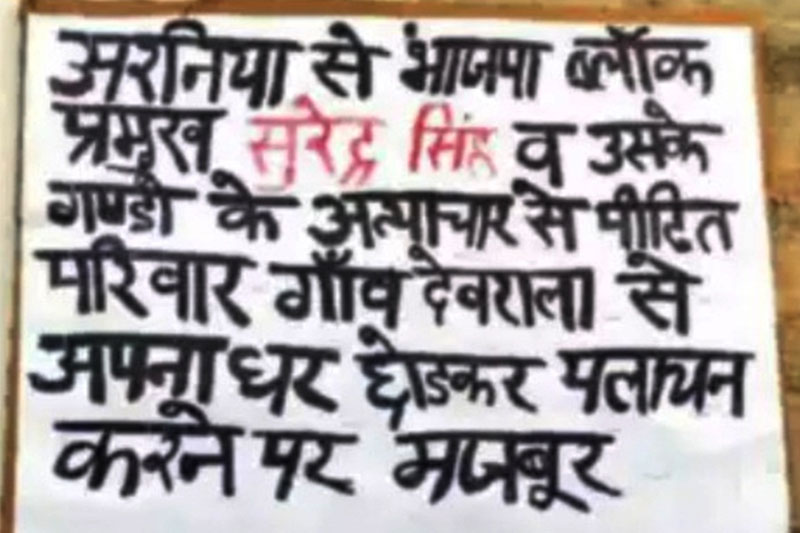 अरनिया से भाजपा ब्लॉक
प्रमुख सुरेद्र सिंह व उसके
गण्डो के अत्याचार से पीडित
परिवार गाँव देवराला से
अपना घर छोडकर पलायन
करने पर मजबूर